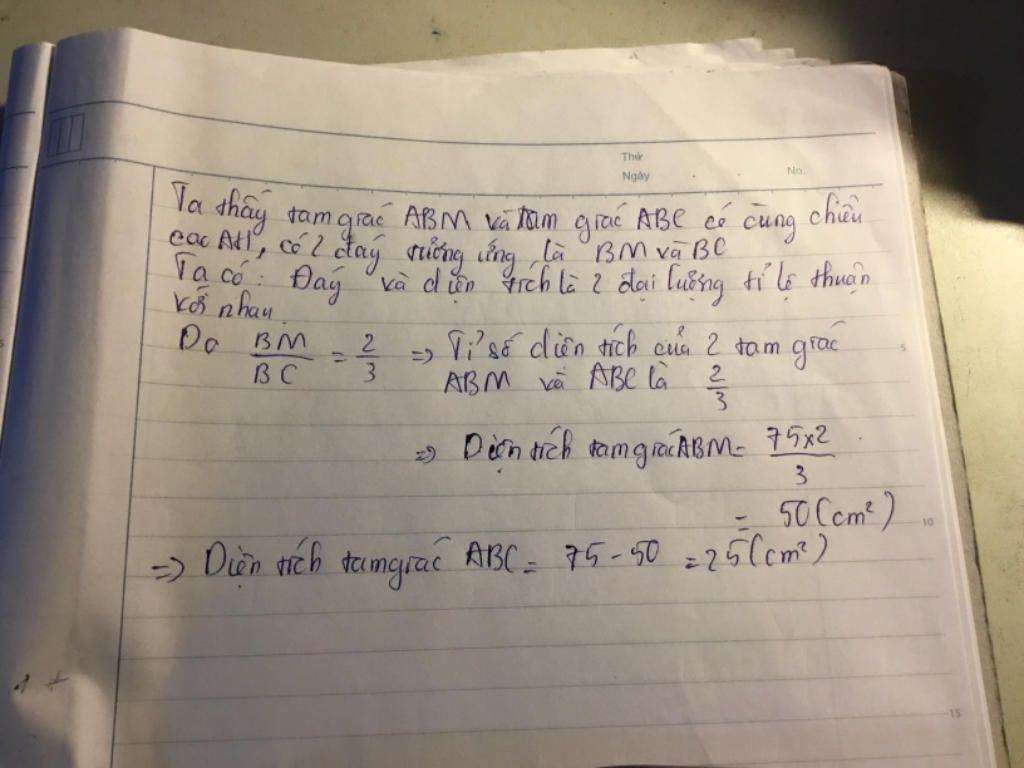 Thứ
Ngày . . No.
Ta thấy tam giác ABM và tam giác ABC có cùng chiều
cao AH, có 2 đáy tương ứng là BM và BC
Ta có: Đáy và diện tích là 2 đại lượng tỉ lệ thuận
với nhau
Do BM/BC = 2/3 => Tỉ số diện tích của 2 tam giác
ABM và ABC là 2/3
=> Diện tích tam giác ABM = 75x2/3
= 50 (cm²)
=> Diện tích tam giác ABC = 75 - 50 = 25 (cm²)
5
10
15